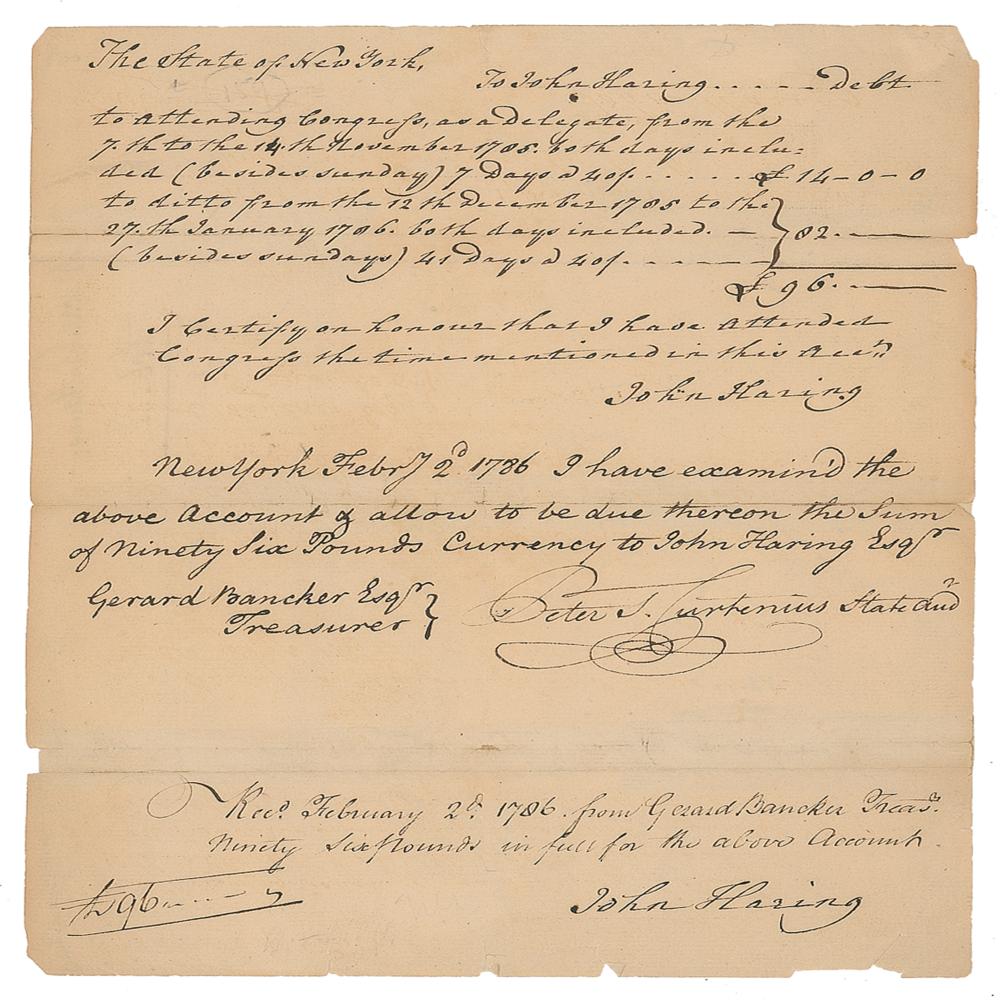 The State of New York,
To John Haring. . . . . - Debt
to Attending Congress, as a Delegate, from the
7.th to the 14.th November 1785. both days inclu=
ded (besides sunday) 7 Days a 40/. . . . . . . £ 14-0-0
to ditto from the 12th December 1785 to the
27.th January 1786. both days included. - } 82. —
(besides sundays) 41 Days a 40/. - - - -
£ 96. —
I Certify on honour that I have Attended
Congress the time mentioned in this Acc.
John Haring
New York Febry 2d. 1786 I have examin'd the
above Account & allow to be due thereon the Sum
of Ninety Six Pounds Currency to John Haring Esqr
Gerard Bancker Esqr }
Treasurer
Peter T. Curtenius State Audr
Recd. February 2d. 1786. from Gerard Bancker Treasr.
Ninety Six pounds in full for the above Account.
£96.. . . -
John Haring